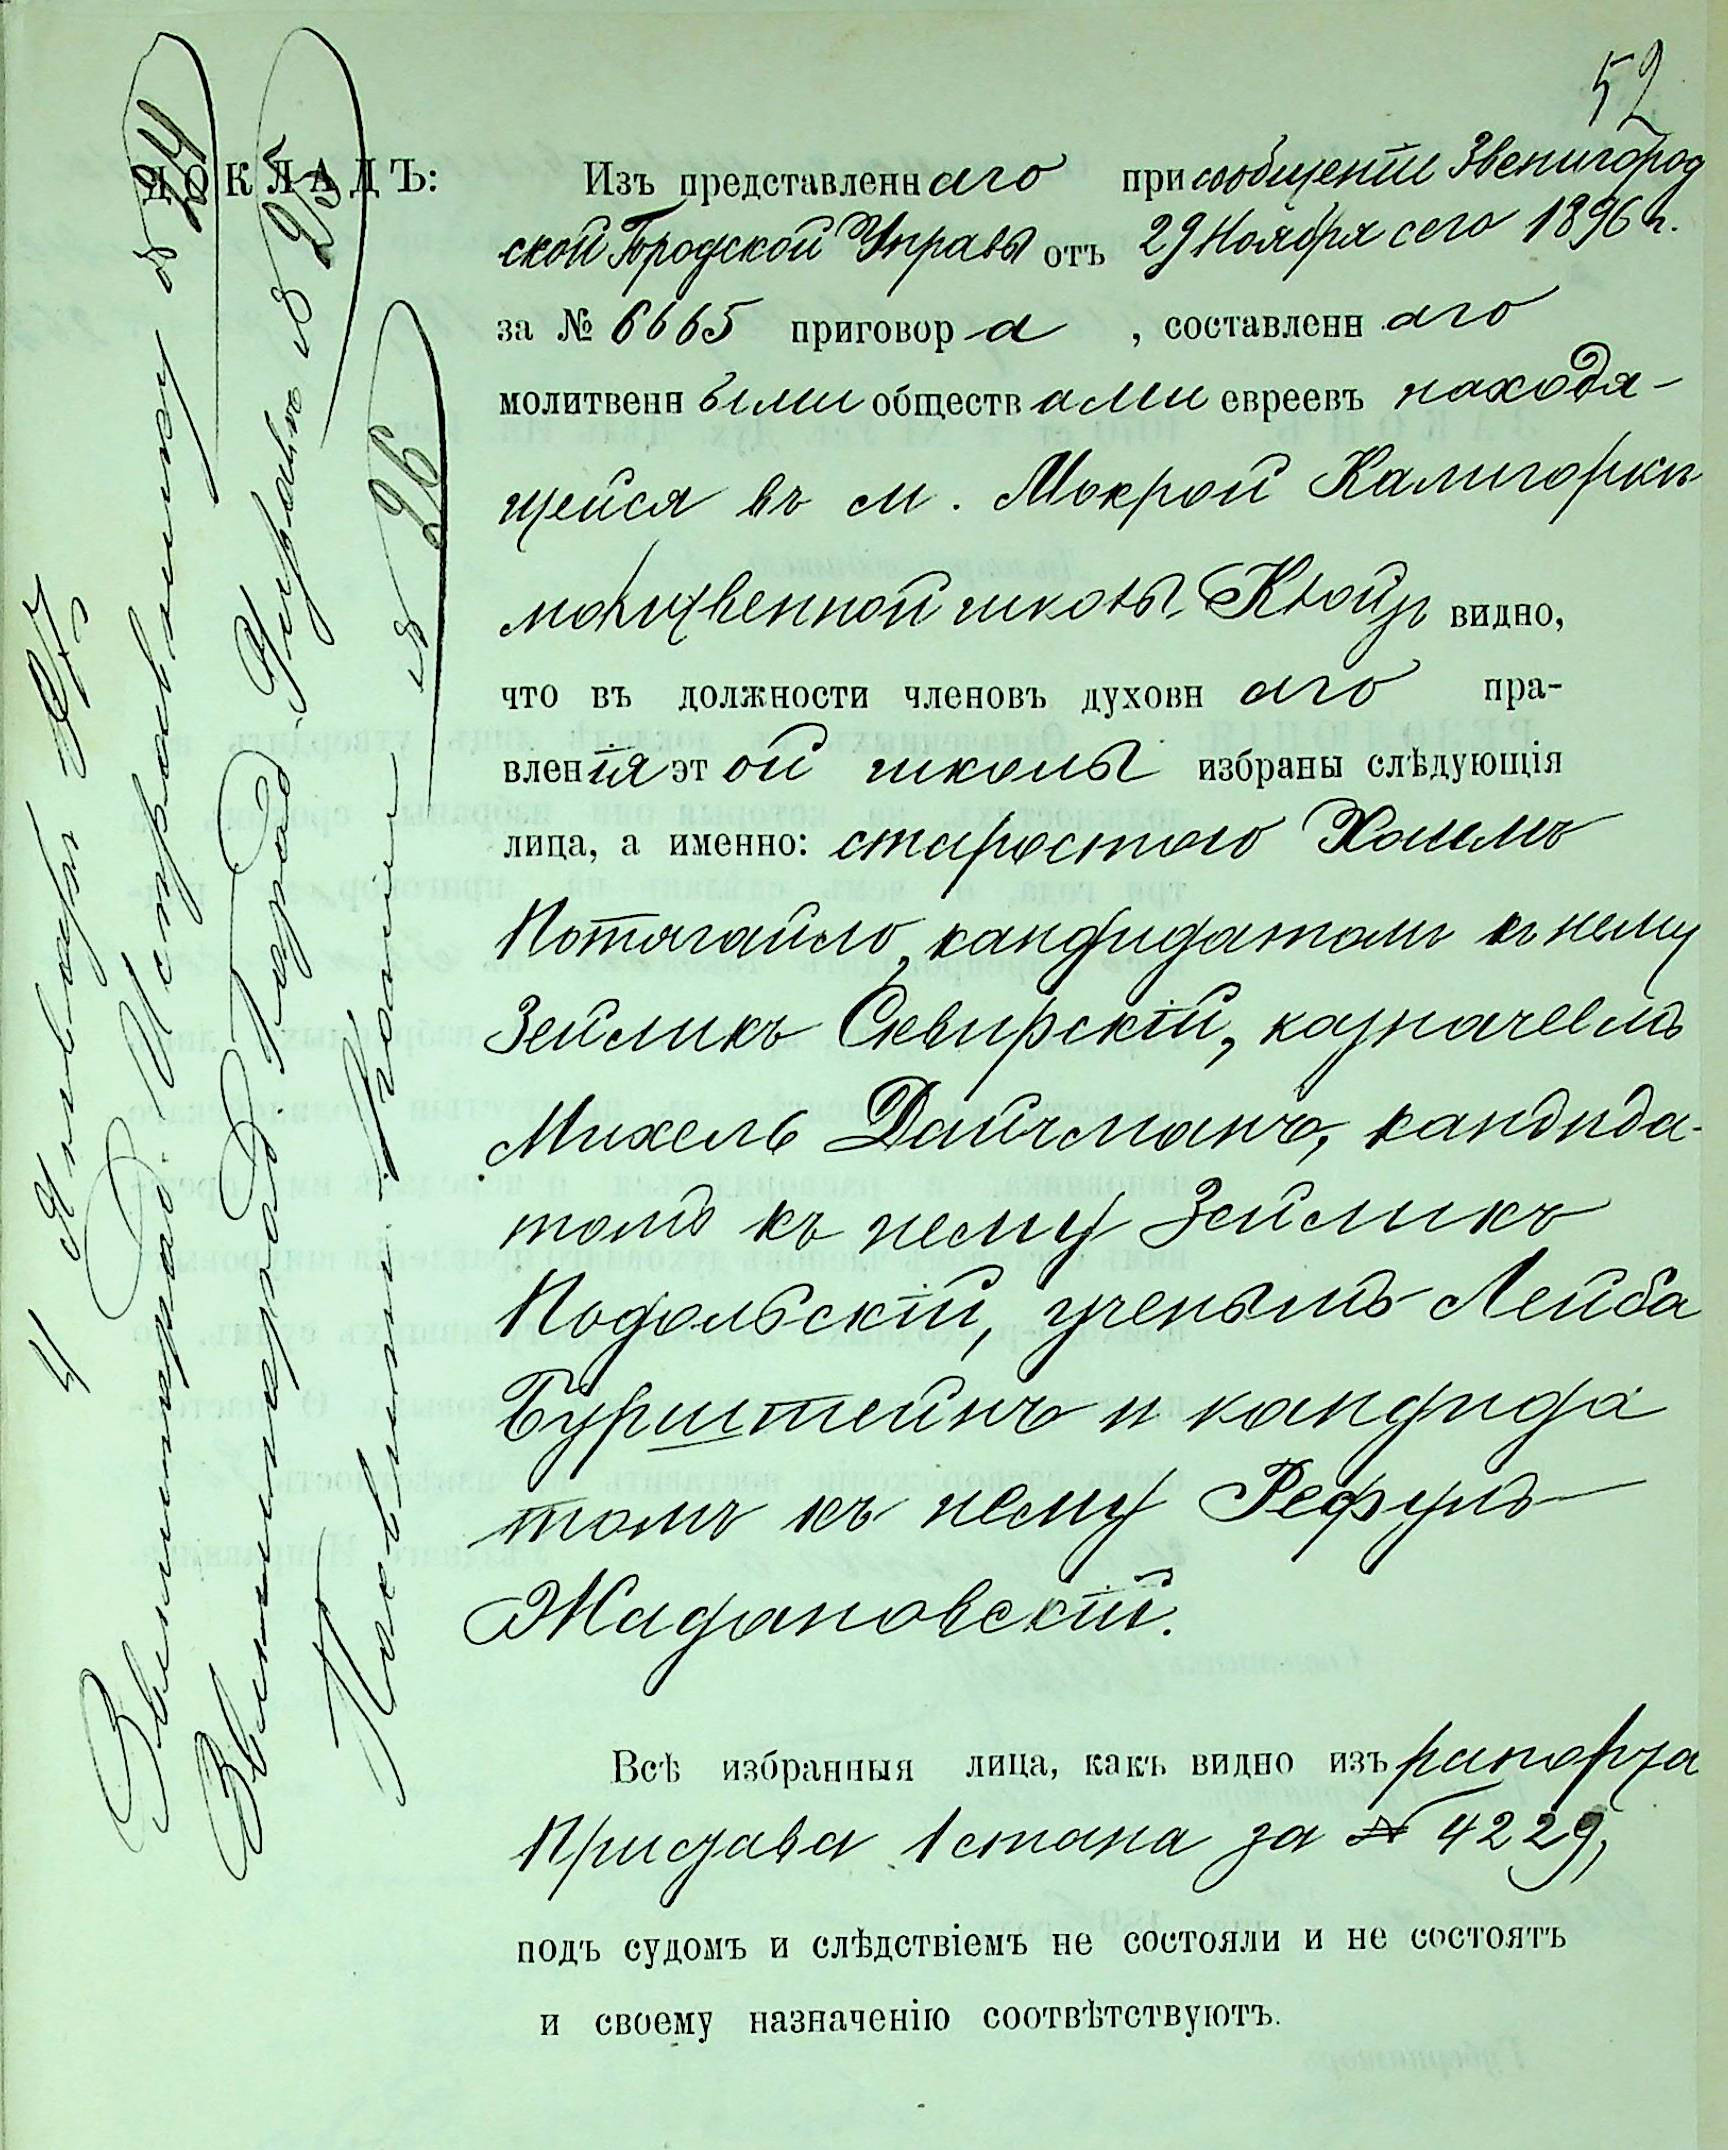 52
ДОКЛАДЪ:
Изъ представленнаго при сообщеніи Звенигород
ской Городской Управы отъ 29 Ноября сего 1896 г.
за № 6665 приговора, составленнаго
молитвенными обществами евреевъ находя-
щейся въ м. Мокрой Калигоркѣ
молитвенной школы Клойзъ видно,
что въ должности членовъ духовнаго пра-
вленія этой школы избраны слѣдующія
лица, а именно: старостою Хаимъ
Потягайло, кандидатомъ къ нему
Зейликъ Сквирскій, казначеемъ
Михель Дайчманъ, кандида-
томъ къ нему Зейликъ
Подольскій, ученымъ Лейба
Бурштейнъ и кандида
томъ къ нему Рефулъ
Жадановскій.
Всѣ избранныя лица, какъ видно изъ рапорта
Пристава 1 стана за № 4229,
подъ судомъ и слѣдствіемъ не состояли и не состоятъ
и своему назначенію соотвѣтствуютъ.
4 Января 97
Звенигород. Исправнику № 24
Звенигород. Город. Управѣ № 25
№ 26